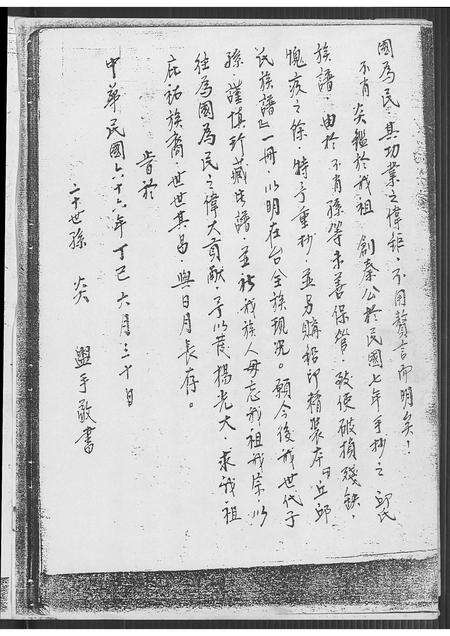 國為民，其功業之偉鉅，不用贅言而明矣！
不肖 炎鑑於我祖 創秦公於民國七年手抄之 邱氏
族譜，由於不肖孫等未善保管，致使破損殘缺，
愧疚之餘，特予重抄，並另購稻印精裝本『丘邱
氏族譜』一冊，以明在台全族現況。願今後我世代子
孫，謹慎珍藏此譜，並祈我族人毋忘我祖我宗，以
往為國為民之偉大貢獻，予以發揚光大，求我祖
庇祐族裔，世世其昌，與日月長存。
旹於
中華民國六十六年丁巳六月三十日
二十世孫 炎 盥手敬書